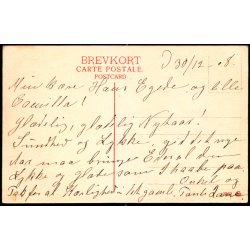 BREVKORT
CARTE POSTALE.
POSTCARD
D 30/12-08.
Min Kære Hans Egede og lille
Camilla!
Glædelig, glædelig Nytaar!
Sundhed og Lykke, gid det nye
Aar maa bringe Eder al den
Lykke og Glæde som I haabe paa.
Tak for al Kærlighed i det gamle. Onkel og
Tante